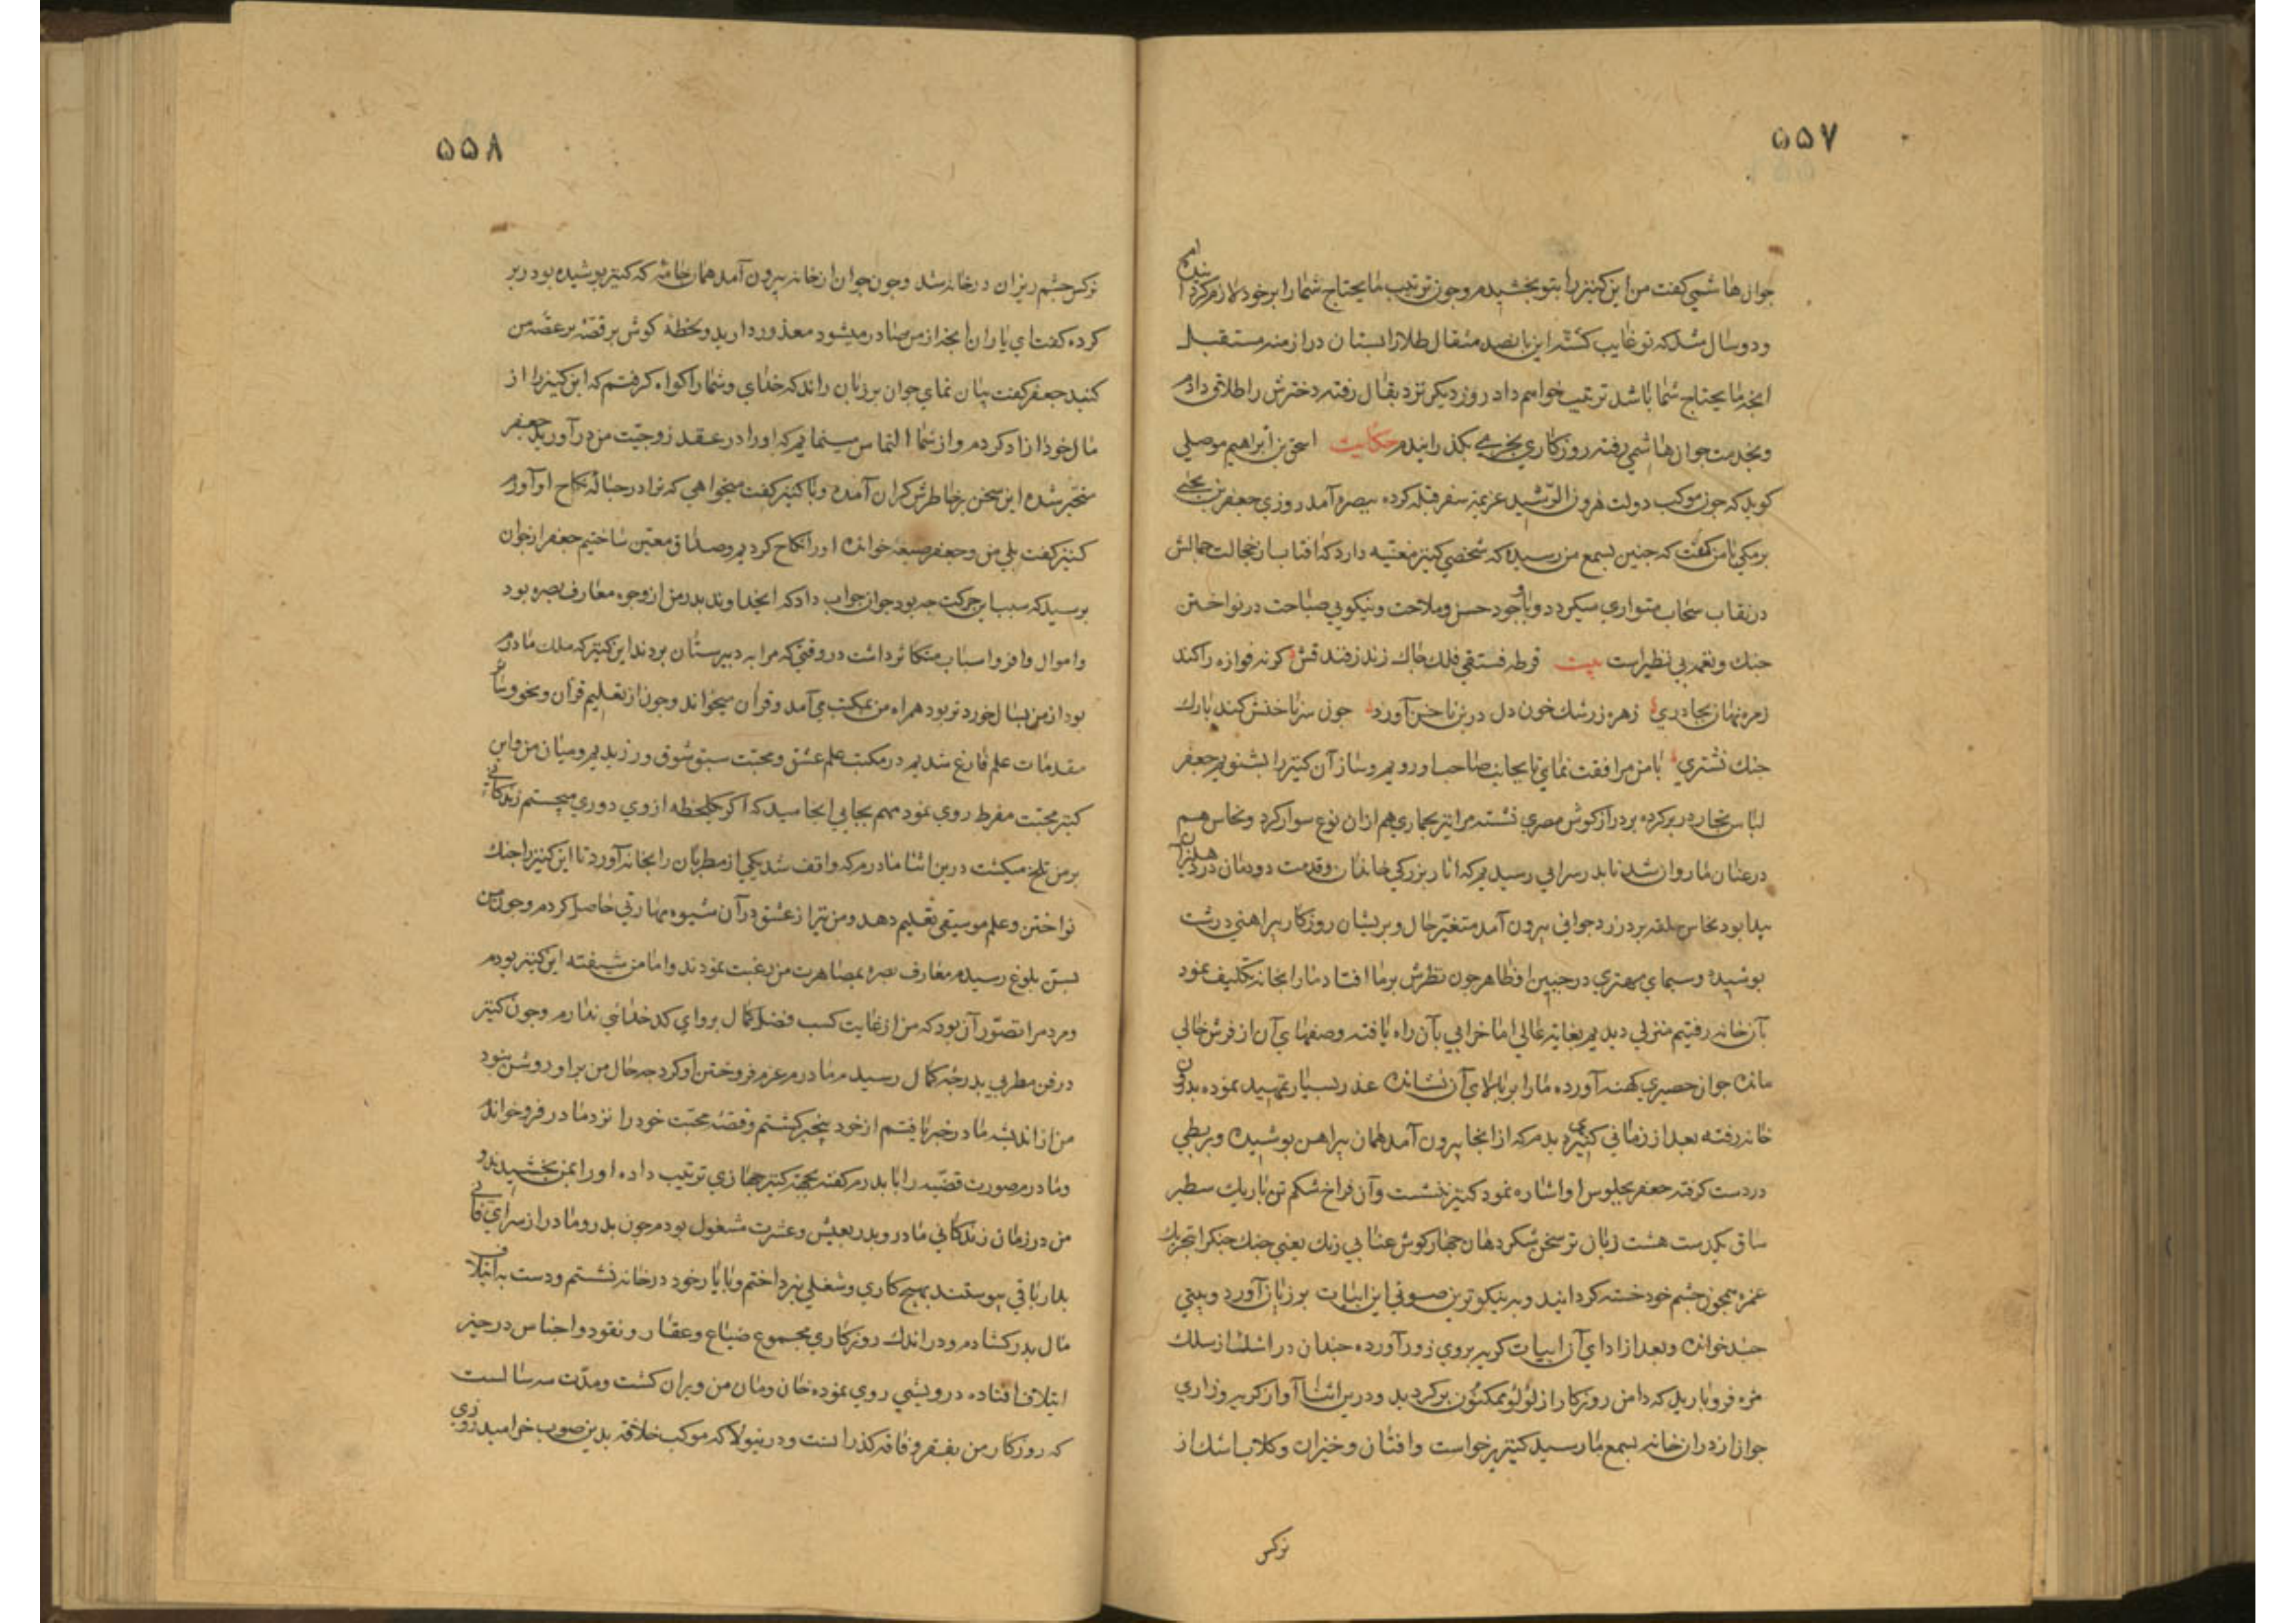 ۵۵۷
جوان هاشمی کفت من این کنیز را بتو بخشیدم و چون ترتیب مایحتاج شما را بر خود لازم کرده ام
و دو سال شد که تو غایب کشته این پانصد مثقال طلا را بستان در ازمنه مستقبل
انچه مایحتاج شما باشد ترتیب خواهم داد روز دیکر نزد بقال رفته دخترش را طلاق دادم
و بخدمت جوان هاشمی رفته روزکاری بخرمی بکذرانیدم حکایت اسحق بن ابراهیم موصلی
کوید که چون موکب دولت هرون الرشید عزیمة سفر قبله کرده ببصره آمد روزی جعفر بن یحیی
برمکی با من کفت که چنین بسمع من رسیده که شخصی کنیز مغنیه دارد که افتاب از خجالت جمالش
در نقاب سحاب متواری میکردد و با وجود حسن و ملاحت و نیکویی صباحت در نواختن
جنک و نغمه بی نظیر است بیت قوطه فستقی فلک چاک زند زفندقش کونه فوازه را کند
زهره نهان بچادری زهره ز رشک خون دل در بن ناخن آورد چون سر ناخنش کند بارک
جنک نشتری با من مرافقت نمای تا بجانب صاحب او رویم و ساز آن کنیز را بشنویم جعفر
لباس تجار در بر کرده بر دراز کوش مصری نشسته مرا نیز بحماری هم از ان نوع سوار کرد و نخاس هم
در عنان ما روان شد تا بدر سرایی رسیدیم که اثار بزرکی خاندان و قدمت دودمان در دهلیز ان
پیدا بود نخاس حلقه بر در زد جوانی بیرون آمد متغیر حال و پریشان روزکار پیراهنی درشت
پوشیده و سیمای مهتری در جبین او ظاهر چون نظرش بر ما افتاد ما را بخانه تکلیف نمود
بآن خانه رفتیم منزلی دیدیم بغایة عالی اما خرابی بآن راه یافته و صفهای آن از فرش خالی
مانده جوان حصیری کهنه آورده ما را بر بالای آن نشانده عذر بسیار تمهید نموده بدرون
خانه رفته بعد از زمانی کنیزی بدیدم که از انجا بیرون آمد همان پیراهن پوشیده و بربطی
در دست کرفته جعفر بجلوس او اشاره نمود کنیز بنشست و آن فراخ شکم تن باریک سطبر
ساق یکدست هشت زبان تر سخن شکر دهان چهار کوش عنابی زنک یعنی چنک جنکرا بتحریک
غمزه همچون چشم خود خسته کردانید و به نیکوترین صوتی این ابیات بر زبان آورد و بیتی
چند خوانده و بعد از ادای آن ابیات کریه بر وی زور آورده چندان در اشک از سلک
مژه فرو بارید که دامن روزکار از لؤلؤ مکنون پر کردید و در این اثنا آواز کریه و زاری
جوان از درون خانه بسمع ما رسید کنیز برخواست و افتان و خیزان و کلاب اشک از
نرکس
۵۵۸
نرکس چشم ریزان در خانه شد و چون جوان از خانه بیرون آمد همان جامه که کنیز پوشیده بود در بر
کرده کفت ای یاران انچه از من صادر میشود معذور دارید و لحظه کوش بر قصه پر غصه من
کنید جعفر کفت بیان نمای جوان بر زبان راند که خدای و شما را کواه کرفتم که این کنیز را از
مال خود ازاد کردم و از شما التماس مینمایم که او را در عقد زوجیت من در آورید جعفر
متحیر شده این سخن بر خاطرش کران آمده و با کنیز کفت میخواهی که ترا در حباله نکاح او آورم
کنیز کفت بلی من و جعفر صیغه خوانده او را نکاح کردیم و صداق معین ساختیم جعفر از جوان
پرسید که سبب این حرکت چه بود جوان جواب داد که ایخداوند پدر من از وجوه معارف بصره بود
و اموال وافر و اسباب متکاثر داشت در وقتی که مرا به دبیرستان بردند این کنیز که ملک مادرم
بود از من بسال خوردتر بود همراه من بمکتب می آمد و قرآن میخواند و چون از تعلیم قرآن و نحو و سایر
مقدمات علم فارغ شدیم در مکتب علم عشق و محبت سبق شوق ورزیدیم و میان من و این
کنیز محبت مفرط روی نمود مهم بجایی انجامید که اکر یکلحظه از وی دوری میجستم زندکانی
بر من تلخ میکشت در این اثنا مادرم که واقف شد یکی از مطربان را بخانه آورد تا این کنیز را جنک
نواختن و علم موسیقی تعلیم دهد و من نیز از عشق در آن شیوه مهارتی حاصل کردم و چون من
بسن بلوغ رسیدم معارف بصره بمصاهرت من رغبت نمودند و اما من شیفته این کنیز بودم
و مردم را تصور آن بود که من از غایت کسب فضل و کمال پروای کدخدائی ندارم و چون کنیز
در فن مطربی بدرجه کمال رسید مادرم عزم فروختن او کرد چه حال من بر او روشن نبود
من از اندیشه مادر خبر یافتم از خود بیخبر کشتم و قصه محبت خود را نزد مادر فرو خوانده
و مادرم صورت قضیه را با پدرم کفته بجهة کنیز جهازی ترتیب داده او را بمن بخشیدند و
من در زمان زندکانی مادر و پدر بعیش و عشرت مشغول بودم چون پدر و مادر از سرای فانی
بدار باقی پیوستند بهیچ کاری و شغلی نپرداختم و با یار خود در خانه نشستم و دست به اتلاف
مال پدر کشادم و در اندک روزکاری مجموع ضیاع و عقار و نقود و اجناس در حیز
اتلاف افتاده درویشی روی نموده خان و مان من ویران کشت و مدت سه سالست
که روزکار من بفقر و فاقه کذرانست و در ینولا که موکب خلافة بدین صوب خرامید روزی